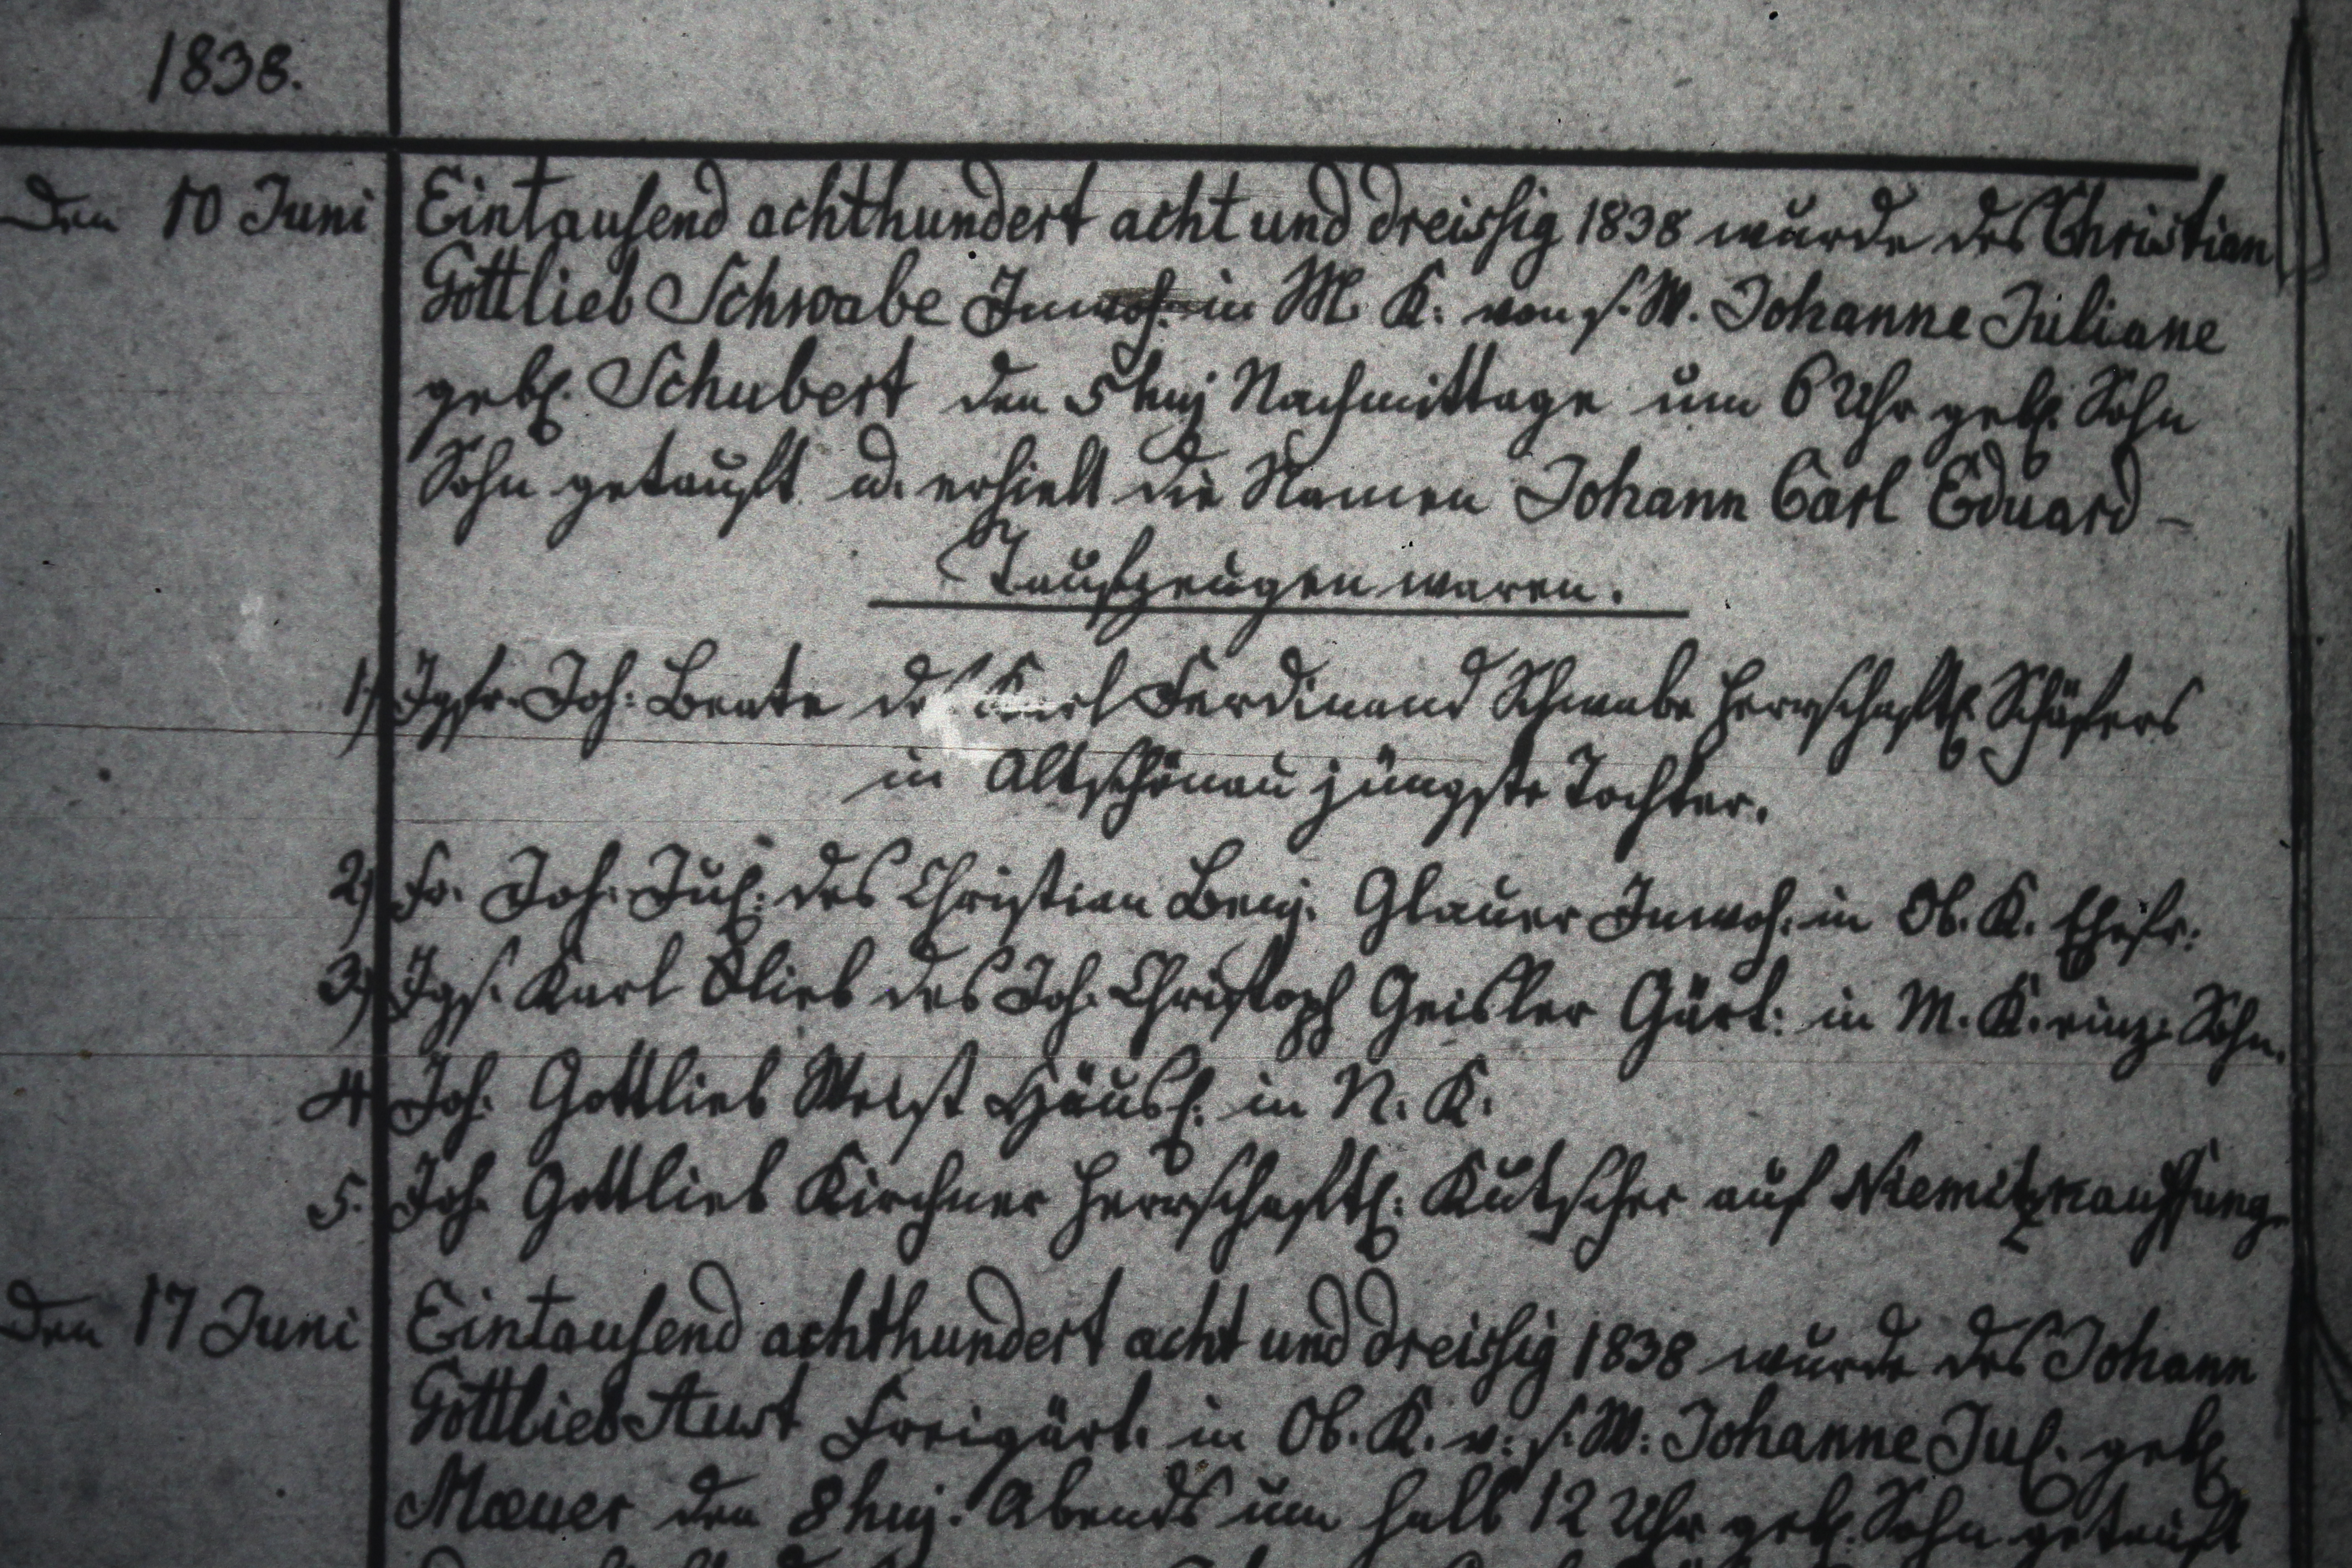 1838.
Den 10 Juni Eintausend achthundert acht und dreissig 1838 wurde des Christian
Gottlieb Schwabe Inwoh. in M. K: von s. W. Johanne Juliane
gebl. Schubert den 5 huj Nachmittage um 6 Uhr gebl. Sohn
Sohn getauft u. erhielt die Namen Johann Carl Eduard –
Taufzeugen waren.
1) Jgfr. Joh: Beate des Karl Ferdinand Schwabe herrschaftl. Schäfers
in Altschönau jüngste Tochter.
2) Fr. Joh. Jul: des Christian Benj. Glauer Inwoh. in Ob. K. Ehefr:
3) Jgs. Karl Glieb des Joh. Christoph Geisler Gärt: in M. K. einz. Sohn.
4. Joh. Gottlieb Häusl. in N. K.
5. Joh. Gottlieb Kirchner herrschaftl: Kutscher auf Niemitzkauffung.
Den 17 Juni Eintausend achthundert acht und dreissig 1838 wurde des Johann
Gottlieb Aust Freigärt. in Ob. K. v: s. W: Johanne Jul. gebl.
den 8 huj. Abends um halb 12 Uhr gebl. Sohn getauft